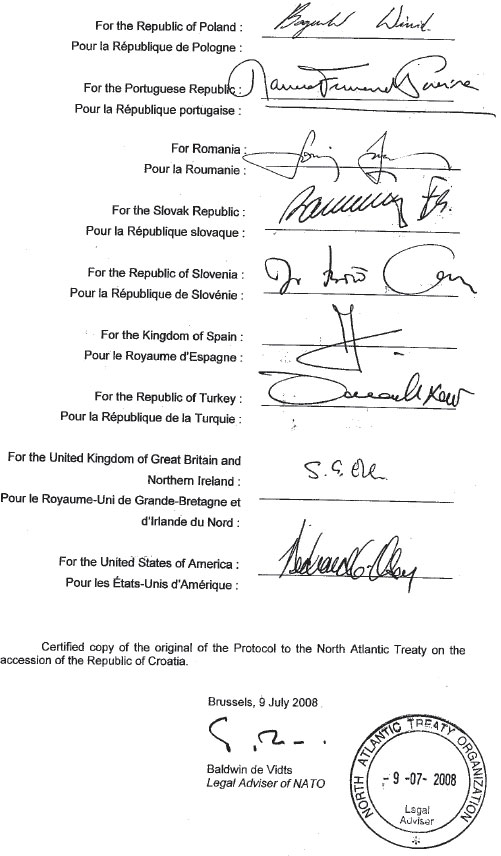 For the Republic of Poland :
Pour la République de Pologne :
For the Portuguese Republic :
Pour la République portugaise :
For Romania :
Pour la Roumanie :
For the Slovak Republic :
Pour la République slovaque :
For the Republic of Slovenia :
Pour la République de Slovénie :
For the Kingdom of Spain :
Pour le Royaume d'Espagne :
For the Republic of Turkey :
Pour la République de la Turquie :
For the United Kingdom of Great Britain and
Northern Ireland :
Pour le Royaume-Uni de Grande-Bretagne et
d'Irlande du Nord :
For the United States of America :
Pour les États-Unis d'Amérique :
Certified copy of the original of the Protocol to the North Atlantic Treaty on the
accession of the Republic of Croatia.
Brussels, 9 July 2008
Baldwin de Vidts
Legal Adviser of NATO
NORTH ATLANTIC TREATY ORGANIZATION
- 9 -07- 2008
Legal
Adviser